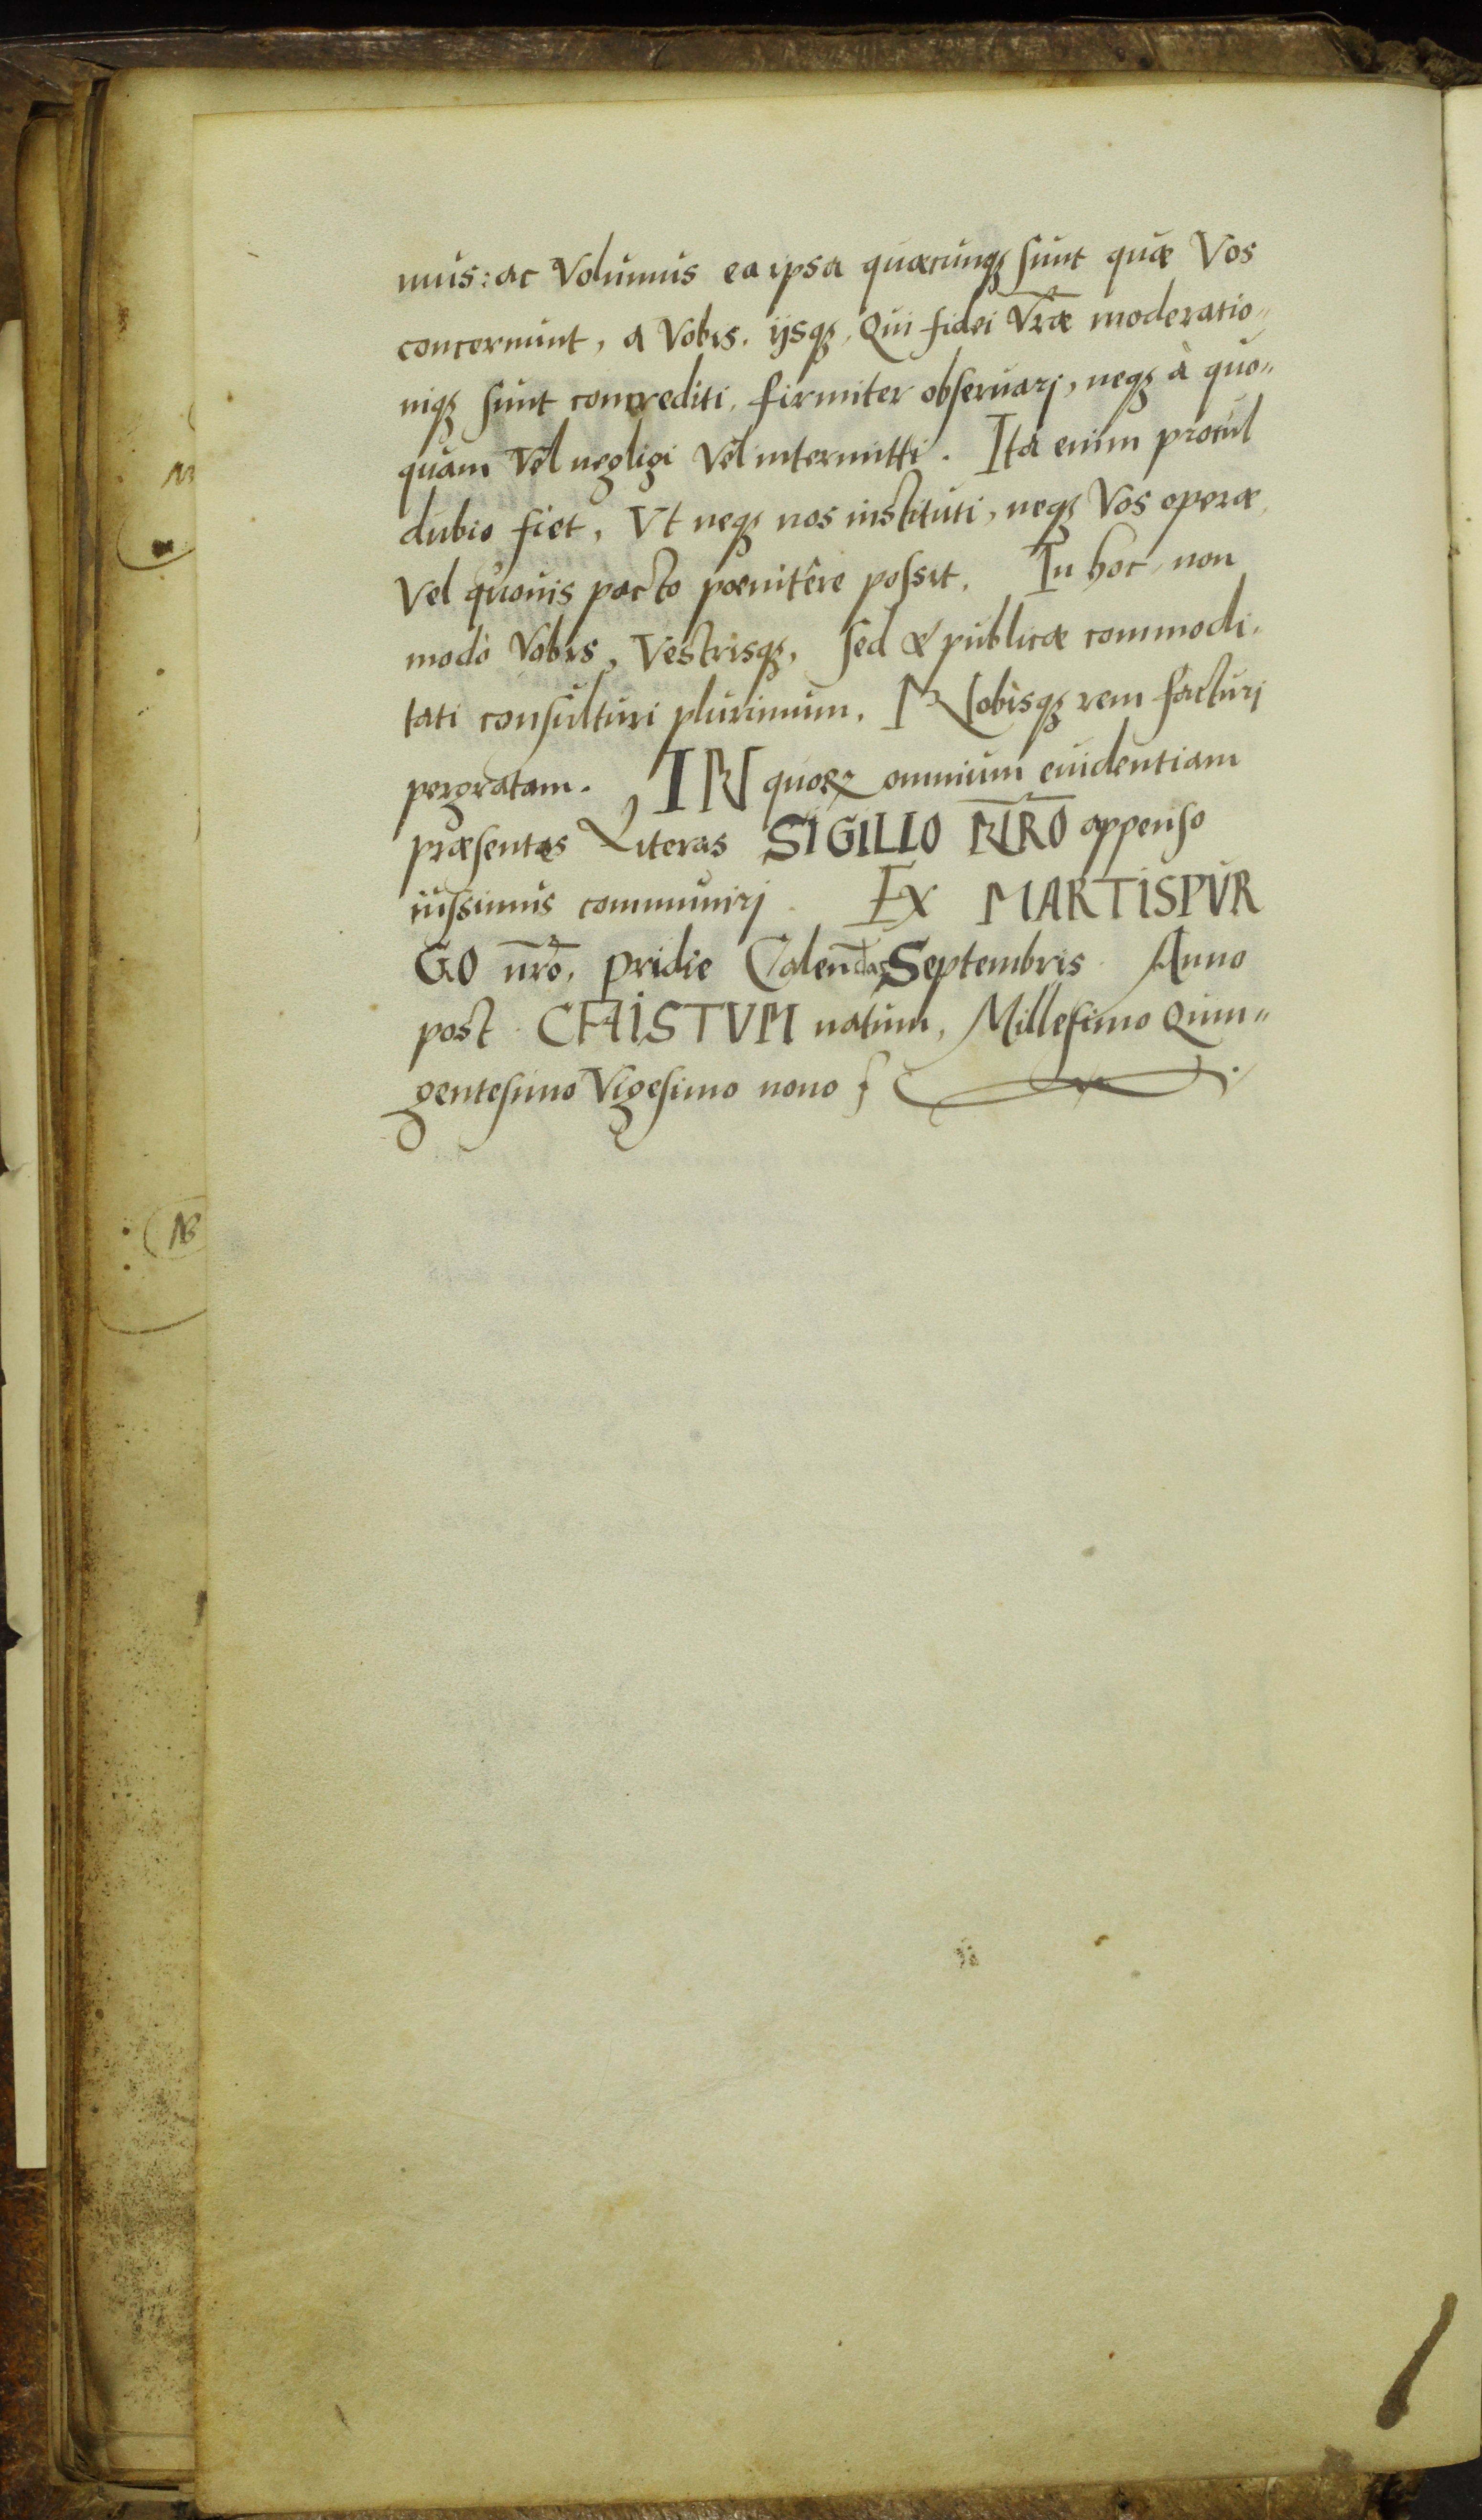 mus: ac Volumus ea ipsa quæcunqꝫ sunt quæ Vos
concernunt, a Vobis, ijsqꝫ, Qui fidei Vr̄æ moderatio„
niqꝫ sunt concrediti, firmiter obseruarj, neqꝫ à quo„
quam Vel negligi Vel intermitti. Ita enim procul
dubio fiet, Vt neqꝫ nos instituti, neqꝫ Vos operæ,
Vel quouis pacto pœnitêre possit. In hoc, non
modò Vobis, Vestrisqꝫ, sed & publicæ commodi,
tati consulturi plurimum, Nobisqꝫ rem facturj
pergratam. IN quoꝝ omnium euidentiam
præsentes Literas SIGILLO NR̄O appenso
iussimus communirj. Ex MARTISPVR
GO nr̄o, pridie Calendas Septembris Anno
post CHRISTVM natum, Millesimo Quin„
gentesimo Vigesimo nono
NB